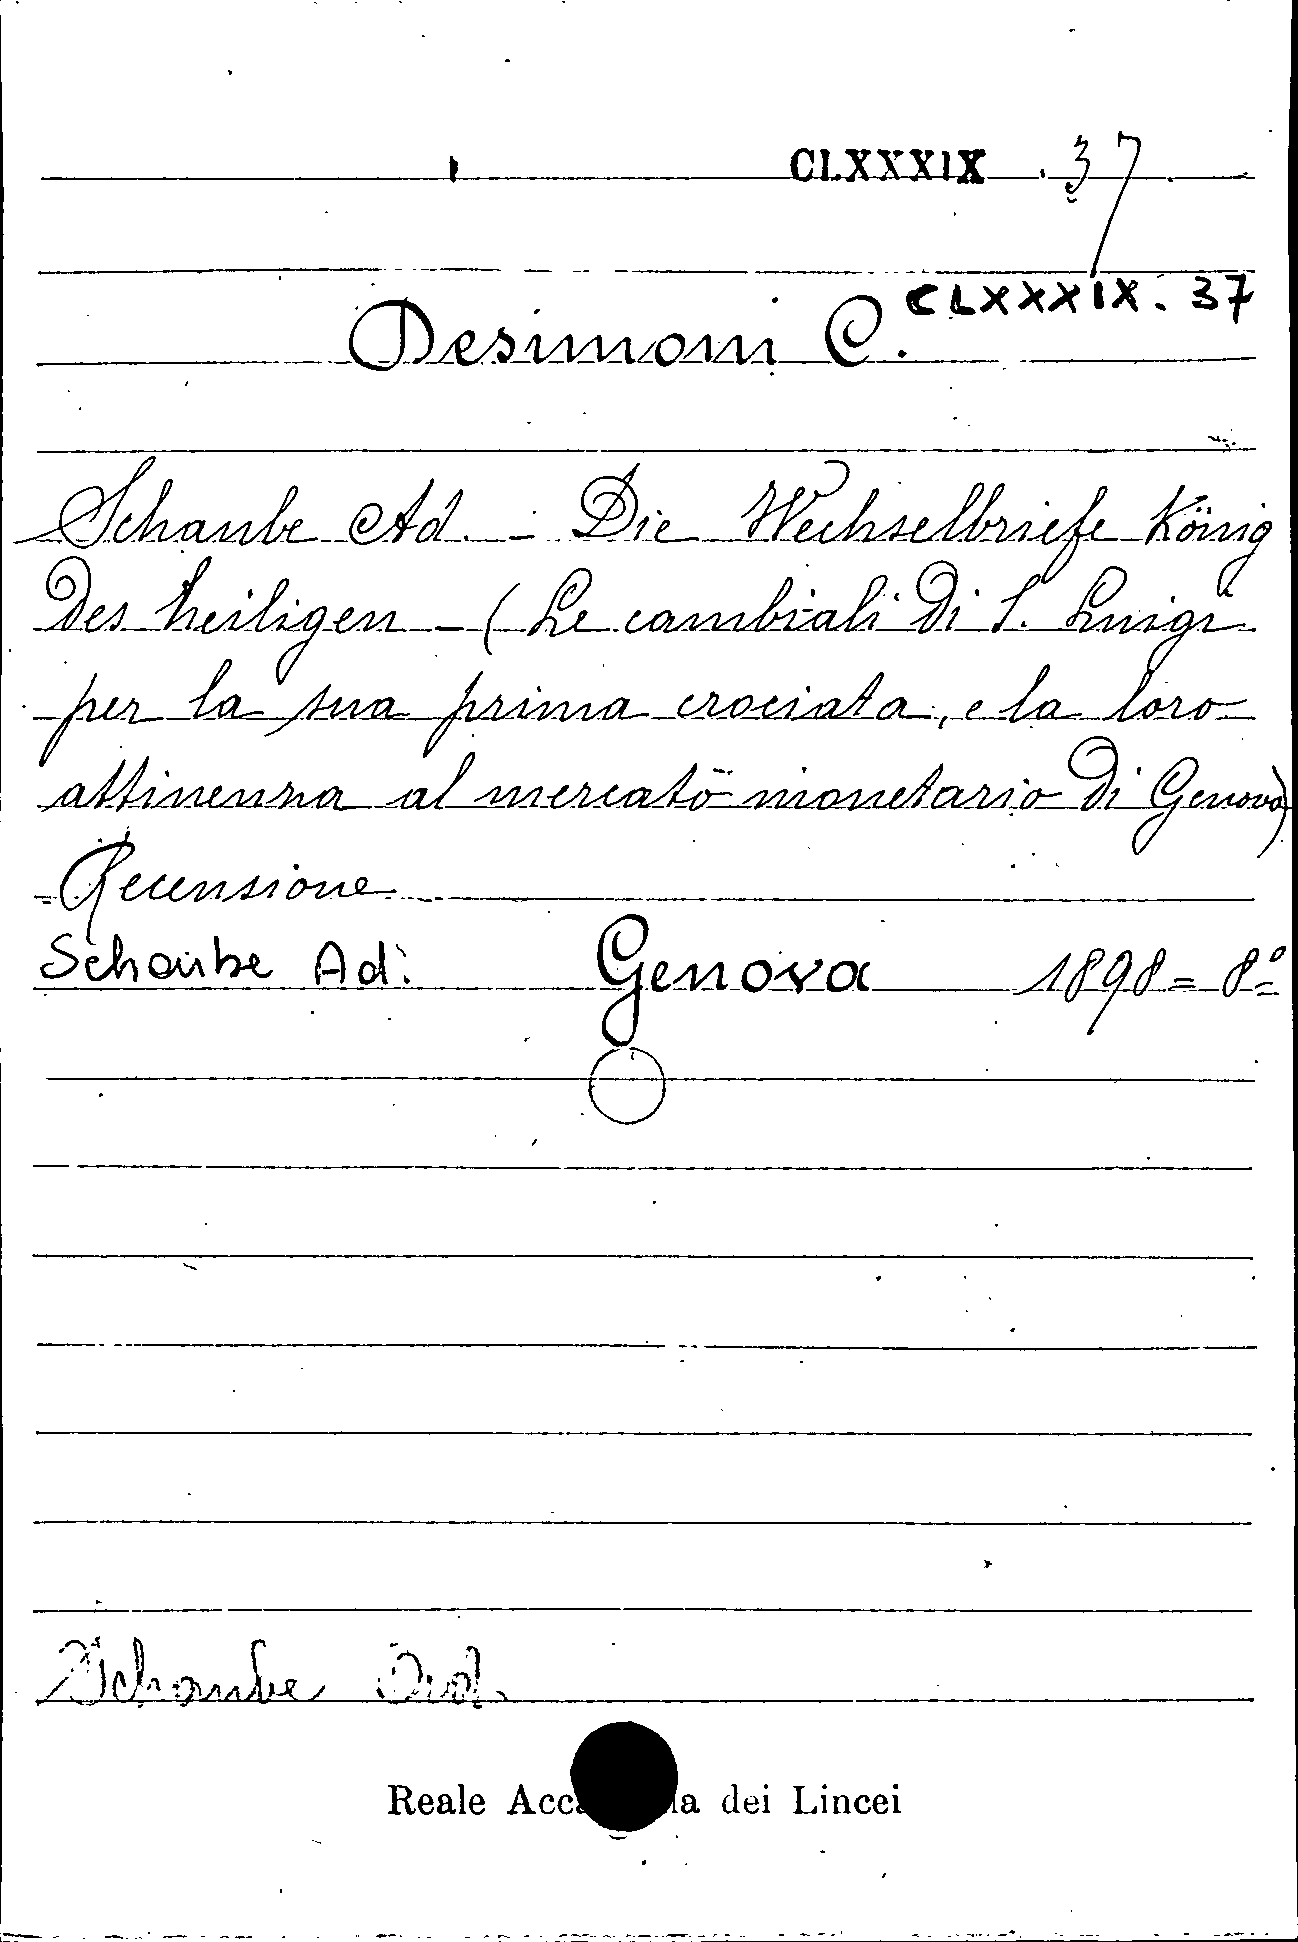 CLXXXIX . 37
CLXXXIX. 37
Desimoni C.
Schaube Ad. - Die Wechselbriefe König
des heiligen - (Le cambiali di S. Luigi
per la sua prima crociata, e la loro
attinenza al mercato monetario di Genova)
Recensione
Schaube Ad. Genova 1898 = 8º
Schaube Ad.
Reale Acca ia dei Lincei